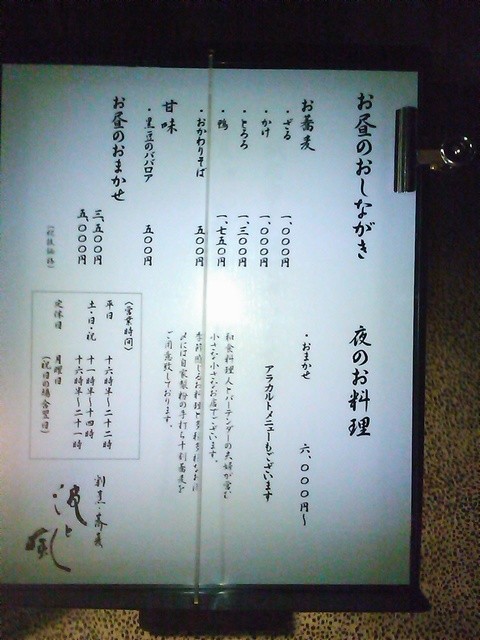 お昼のおしながき
お蕎麦
・ざる 一、〇〇〇円
・かけ 一、〇〇〇円
・とろろ 一、三〇〇円
・鴨 一、七五〇円
・おかわりそば 五〇〇円
甘味
・黒豆のババロア 五〇〇円
お昼のおまかせ
三、五〇〇円
五、〇〇〇円
(税抜価格)
夜のお料理
・おまかせ 六、〇〇〇円〜
アラカルトメニューもございます
和食料理人とバーテンダーの夫婦が営む
小さな小さなお店でございます。
季節感じるお料理と
〆には自家製粉の手打ち十割蕎麦を
ご用意致しております。
(営業時間)
平日 十六時半〜二十二時
土・日・祝 十一時半〜十四時
十六時半〜二十一時
定休日 月曜日
(祝日の場合翌日)
割烹・蕎麦
波と風